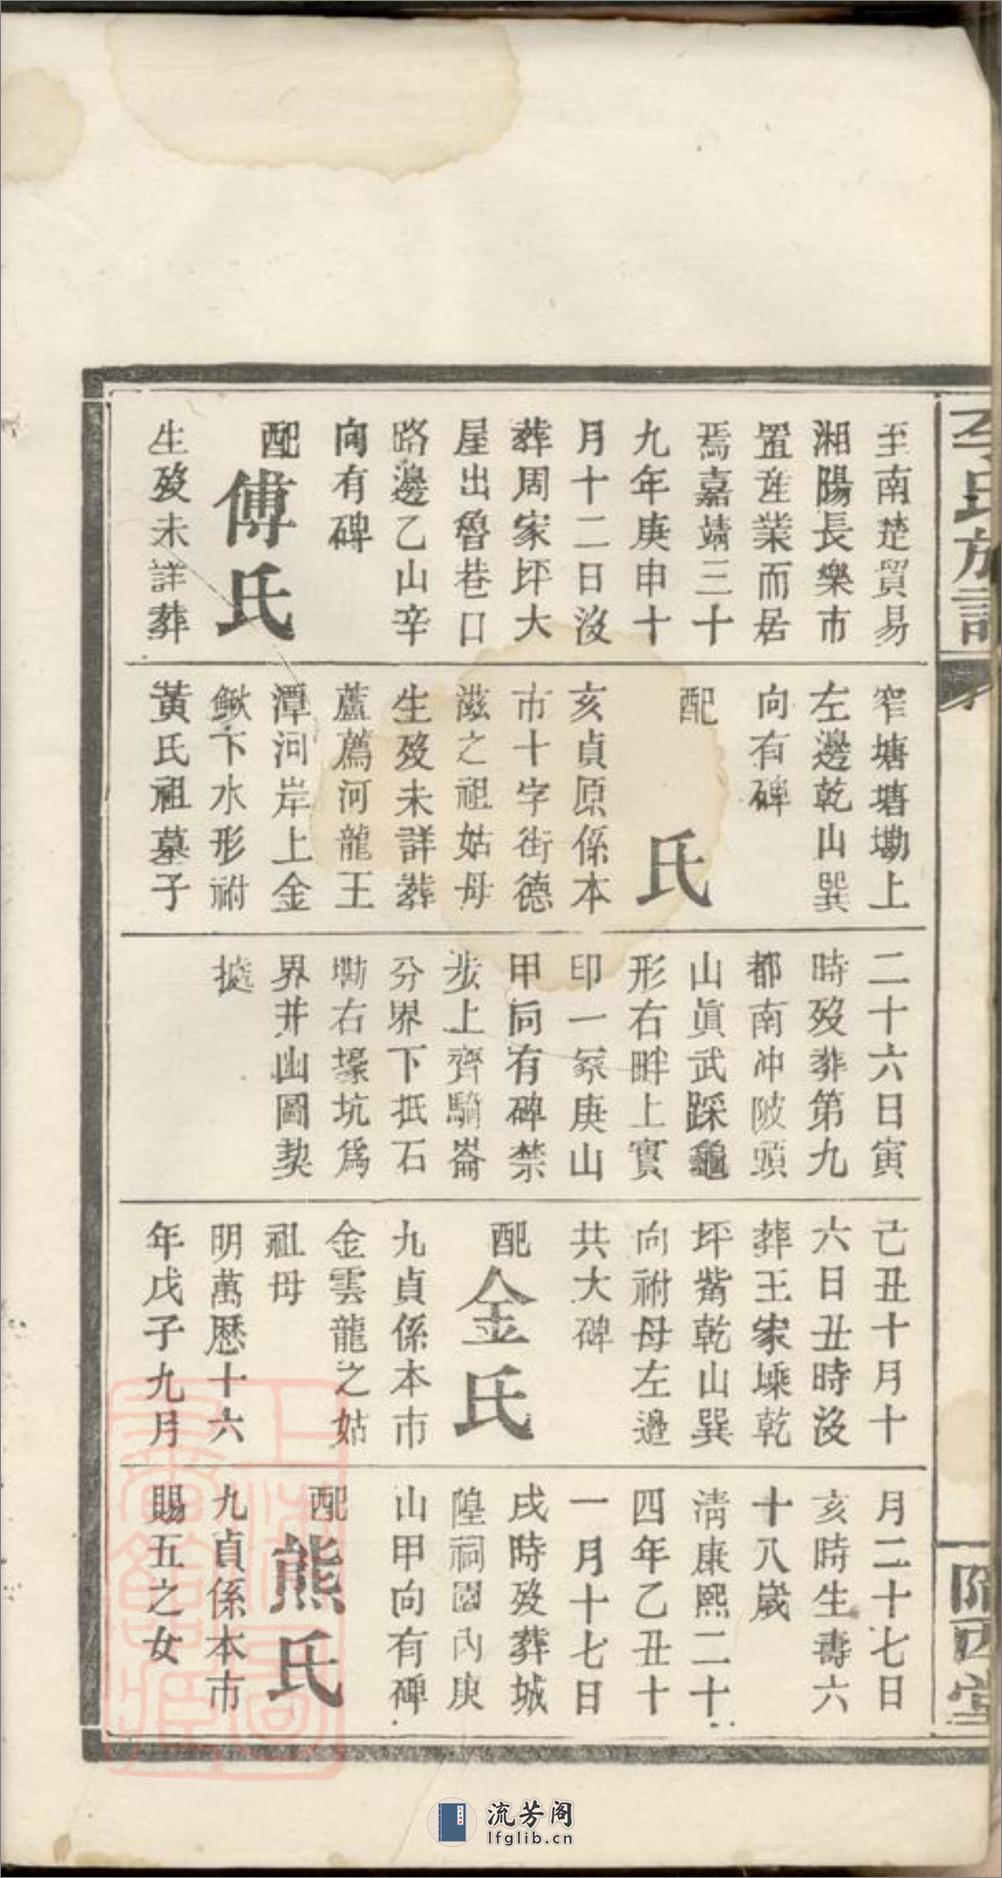 李氏族譜
隴西堂
至南楚貿易
湘陽長樂市
置產業而居
焉嘉靖三十
九年庚申十
月十二日沒
葬周家坪大
屋出魯巷口
路邊乙山辛
向有碑
配傅氏
生歿未詳葬
窄塘塘墈上
左邊乾山巽
向有碑
配 氏
亥貞原係本
市十字街德
滋之祖姑母
生歿未詳葬
蘆薦河龍王
潭河岸上金
鰍下水形祔
黃氏祖墓子
二十六日寅
時歿葬第九
都南冲陂頭
山眞武踩龜
形右畔上實
印一冢庚山
甲向有碑禁
步上齊騎崙
分界下抵石
墈右壕坑爲
界井山圖契
據
己丑十月十
六日丑時沒
葬王家塅乾
坪觜乾山巽
向祔母左邉
共大碑
配金氏
九貞係本市
金雲龍之姑
祖母
明萬曆十六
年戊子九月
月二十七日
亥時生壽六
十八歲
清康熙二十
四年乙丑十
一月十七日
戌時歿葬城
隍祠園內庚
山甲向有碑
配熊氏
九貞係本市
賜五之女
流芳阁
lfglib.cn